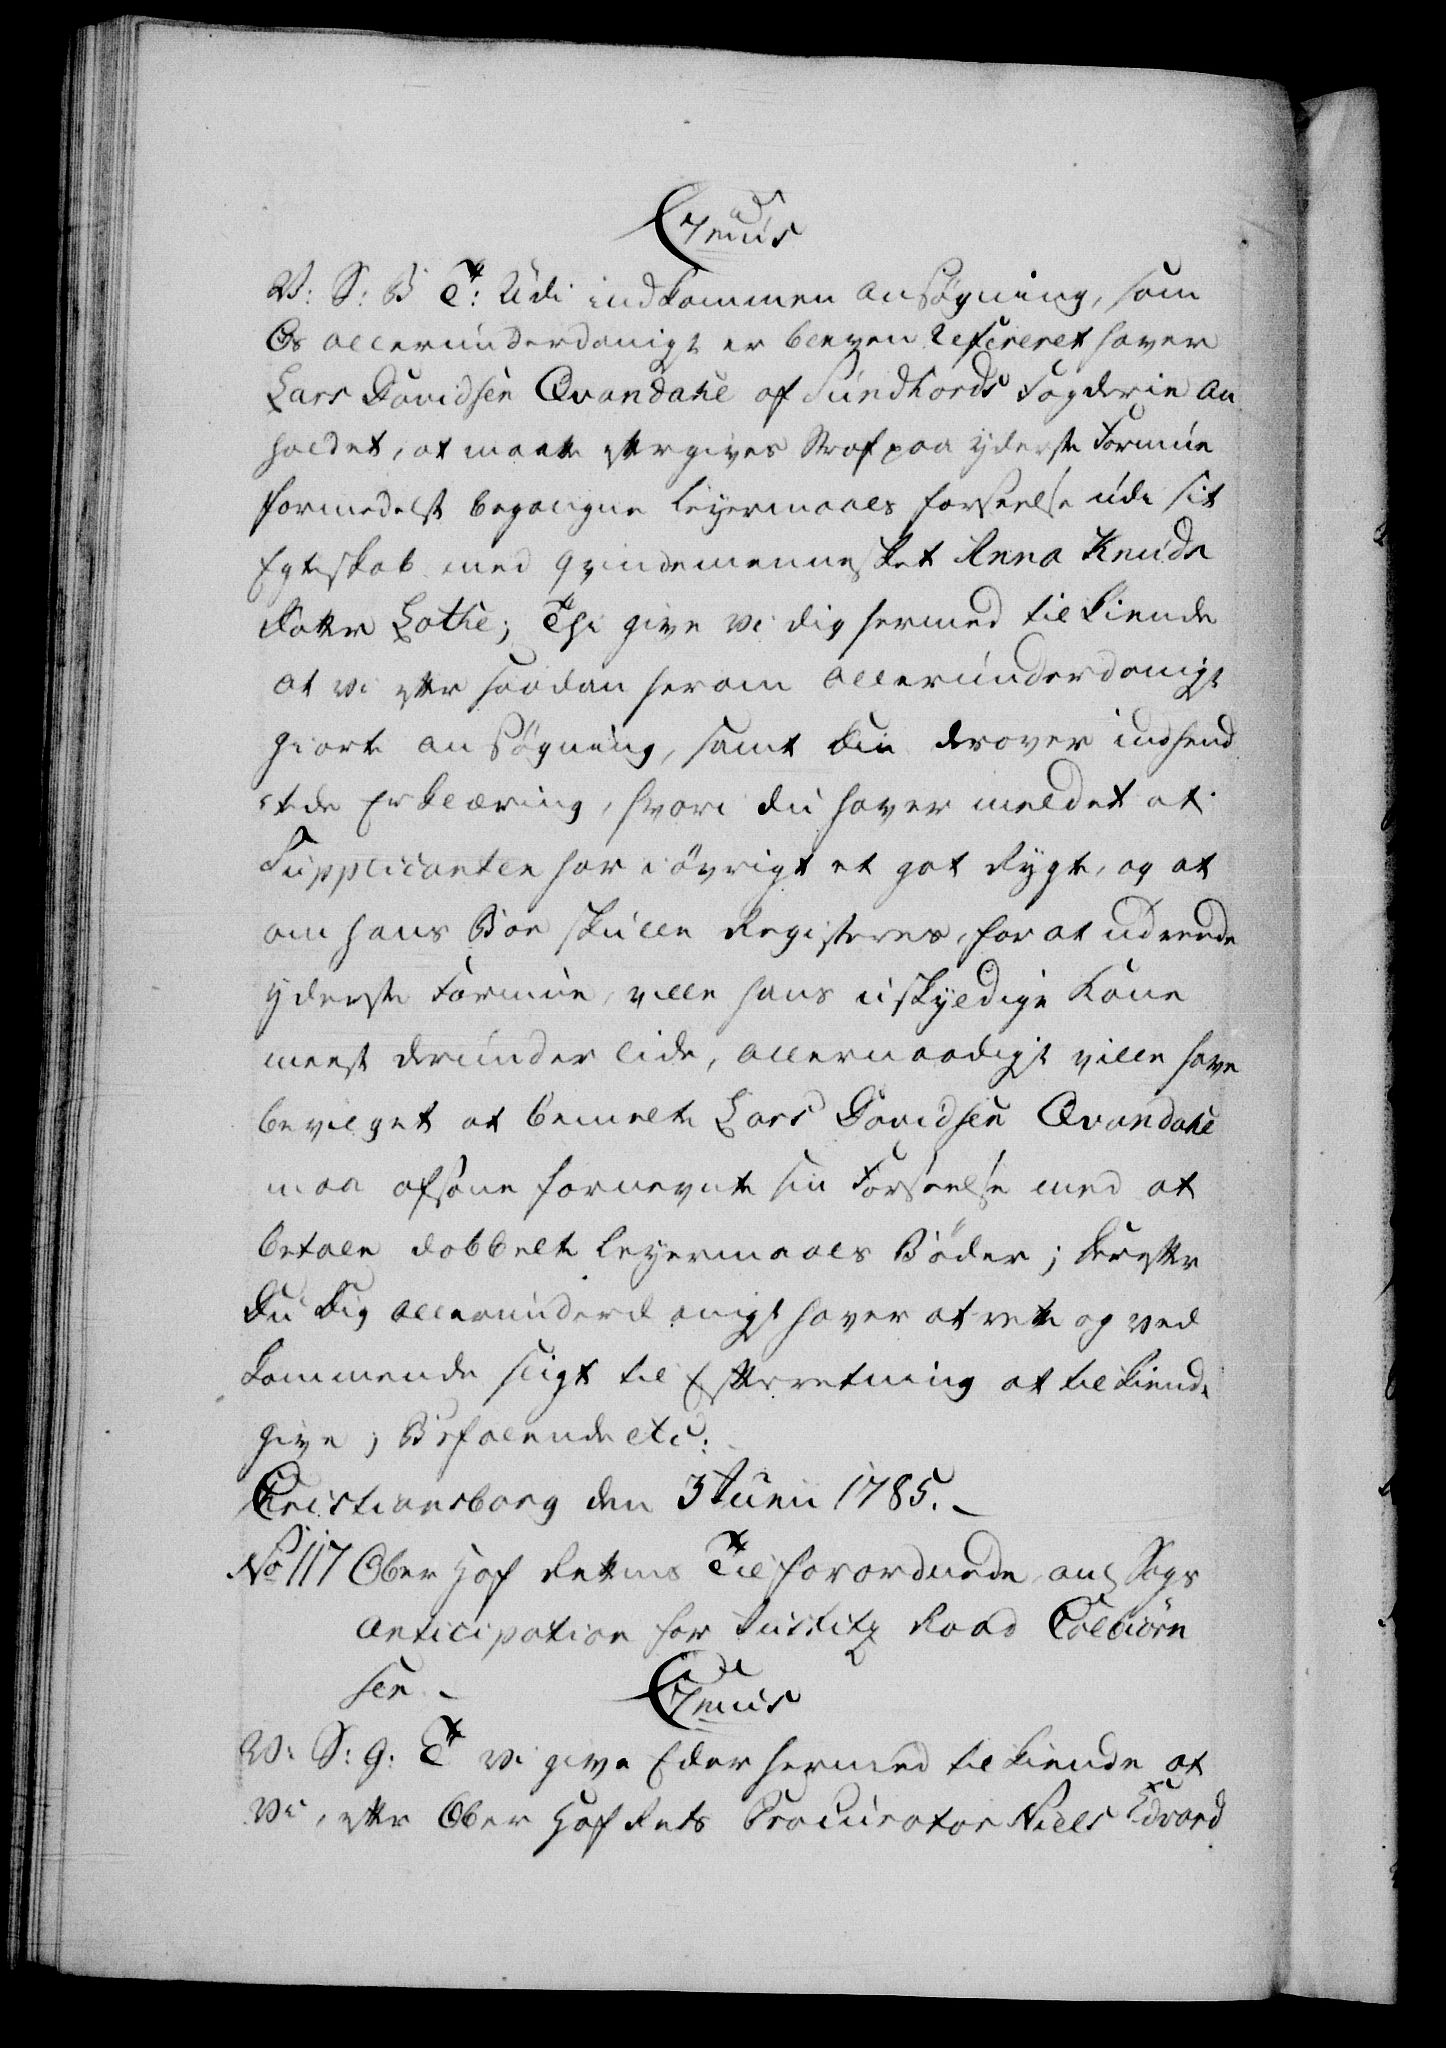 C7mus
V: S: B T: Udi indkommen ansøgning, som
Os allerunderdanigst er bleven refereret haver
Lars Davidsen Qvandahl af Sundhords Fogderie an
holdet, at maatte eftergives Straf paa yderste Formue
formedelst begangne Leyermaals forseelse udi sit
Egteskab med qvindemennesket Anna Knuds
datter Lothe; Thi give vi dig hermed tilkiende
at vi efter saadan herom allerunderdanigst
giorte ansøgning, samt din derover indsend
te Erklæring, hvori du haver meldet at
Supplicanten har i øvrigt et got Rygte, og at
om hans Boe skulle Registeres, for at udrede
yderste Formue, ville hans uskyldige Kone
meest derunder lide, allernaadigst ville have
bevilget at bemelte Lars Davidsen Qvandahl
maa afsone fornevnte sin Forseelse med at
betale dobbelt Leyermaals Bøder; derefter
Du Dig allerunderdanigst haver at rette og ved
kommende sligt til Efterretning at tilkiende
give; Befalende etc:
Christiansborg den 3 Junii 1785.
No 117 Ober Hof Rettens Tilforordnede, ang Sags
Anticipation for Justitz Raad Colbiørn
sen
C7mus
V: S: G: T vi give Eder hermed tilkiende at
Vi, efter Ober Hof Rets Procurator Niels Edvard